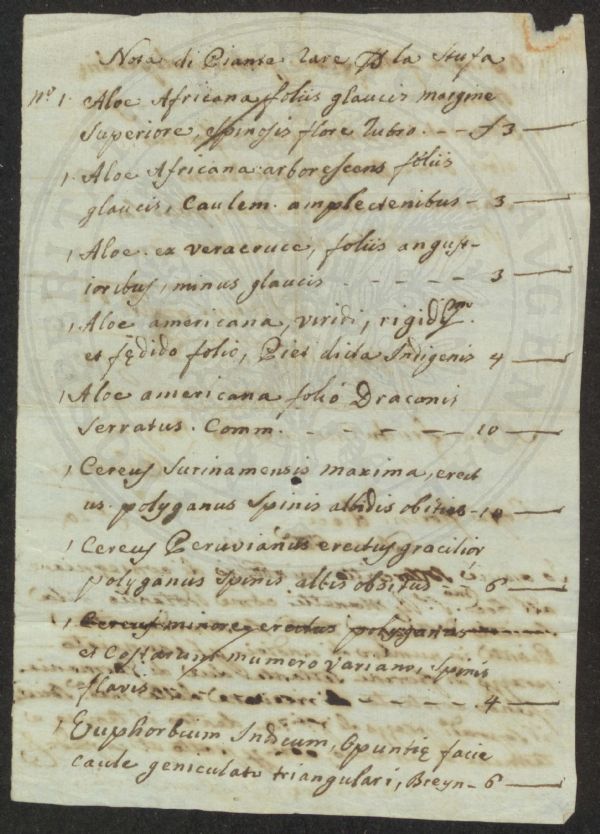 Nota di Piante rare p la Stufa
nº 1. Aloe Africana foliis glaucis margine
Superiore, Spinosis flore rubro. - - f 3 —
1. Aloe Africana arborescens foliis
glaucis, Caulem amplectenibus - 3 —
1 Aloe ex veracruce, foliis angust-
ioribus, minus glaucis - - - - - 3 —
1 Aloe americana, viridi, rigidismo
et fędido folio, Piet dicta Indigenis 4 —
1 Aloe americana folio Draconis
Serratus. Comm. - - - - - - 10 —
1 Cereus Surinamensis maxima, erect
us polyganus Spinis albidis obitus - 10 —
1 Cereus Peruvianus erectus gracilior
polyganus Spinis altis obsitus 6 —
1 Cereus minore erectus polyganus
et Costarum numero variano, Spinis
flavis - - - 4 —
1 Euphorbium Indicum, Opuntię facie
Caule geniculato triangulari, Breyn - 6 —